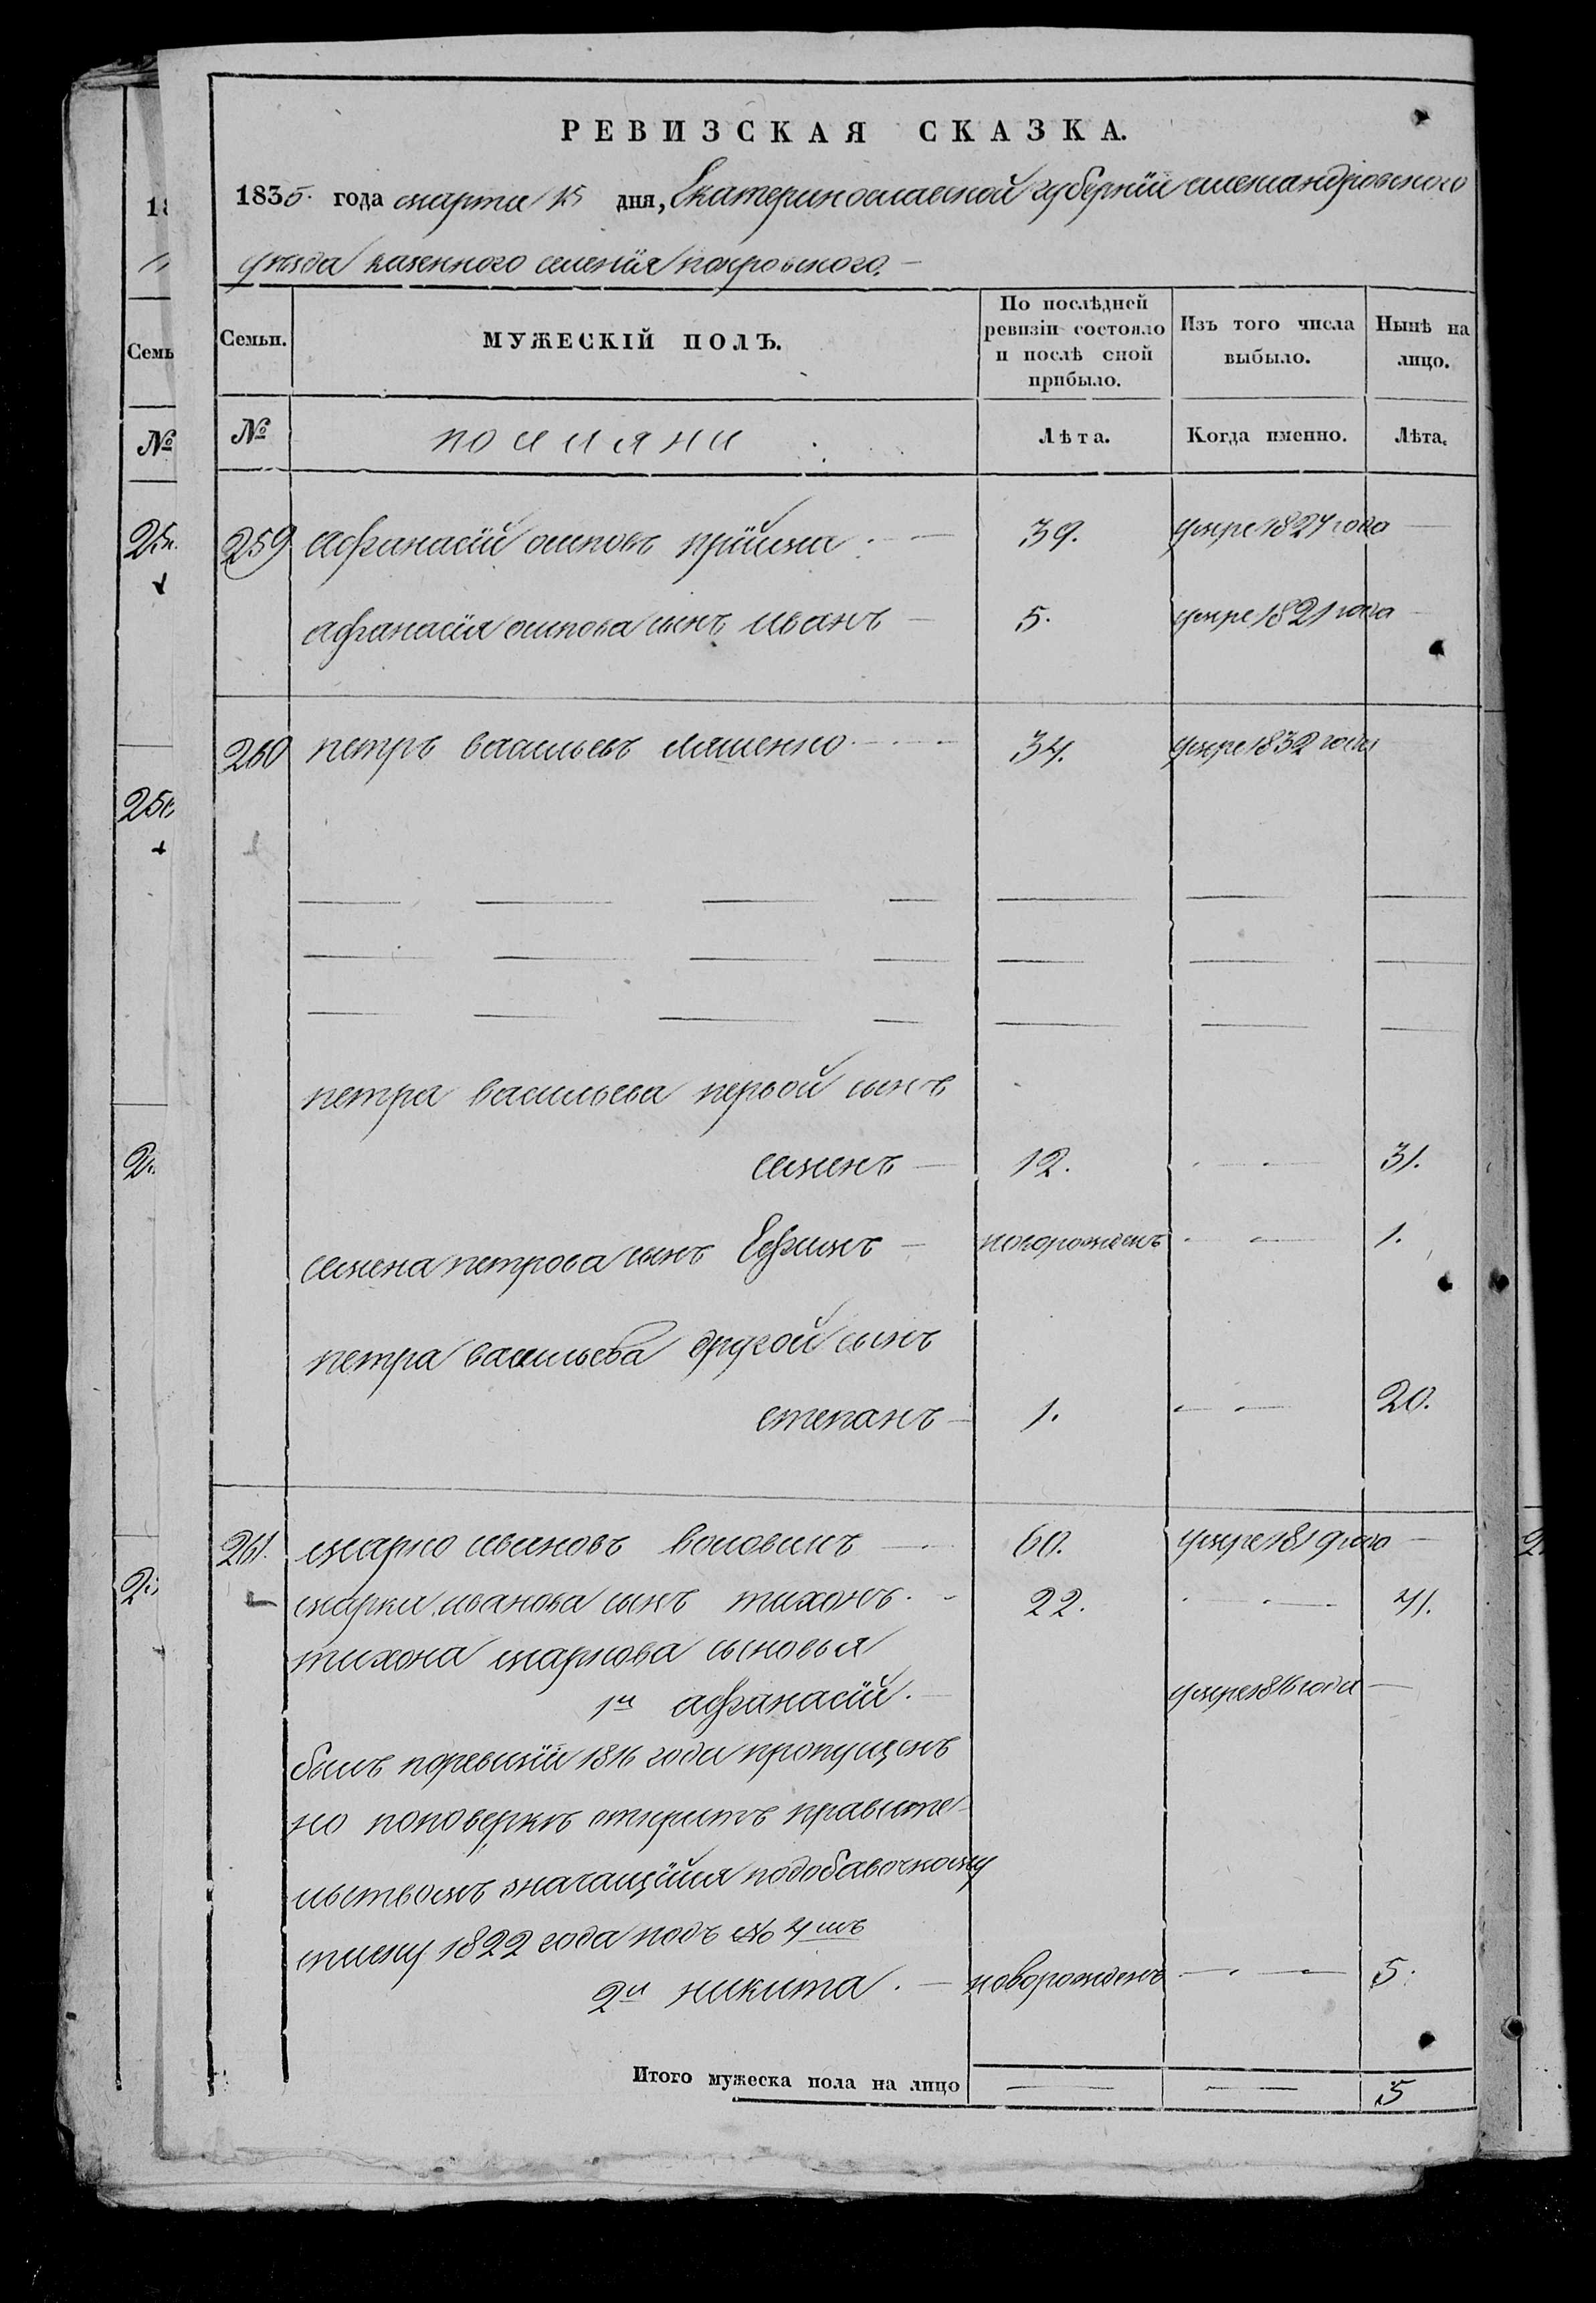 РЕВИЗСКАЯ СКАЗКА.
1835. года марта 15 дня, Екатеринославской губернїи александровского
уезда казенного селенїя покровского.
Семьи.
МУЖЕСКІЙ ПОЛЪ.
По послѣдней ревизіи состояло и послѣ сной прибыло.
Изъ того числа выбыло.
Нынѣ на лицо.
№
поселяни
Лѣта.
Когда именно.
Лѣта.
259 Афанасїй осиповъ прїйма 39. умре 1827 года
афанасїя осипова сынъ иванъ 5. умре 1821 года
260 петръ васильевъ ляшенко 34. умре 1832 года
петра васильева первой сынъ
семенъ 12. 31.
семена петрова сынъ Ефимъ новорожденъ 1.
петра васильева другой сынъ
степанъ 1. 20.
261. марко ивановъ воловикъ 60. умре 1819 года
марка иванова сынъ тихонъ 22. 41.
тихона маркова сыновья
1й афанасїй. умре 1816 года
былъ поревизїи 1816 года пропущенъ
но поповеркѣ открытъ правите
льствомъ значащїйся подобавочному
списку 1822 года подъ № 4мъ
2й никита. новорожденъ 5.
Итого мужеска пола на лицо 5
18
Семь
№